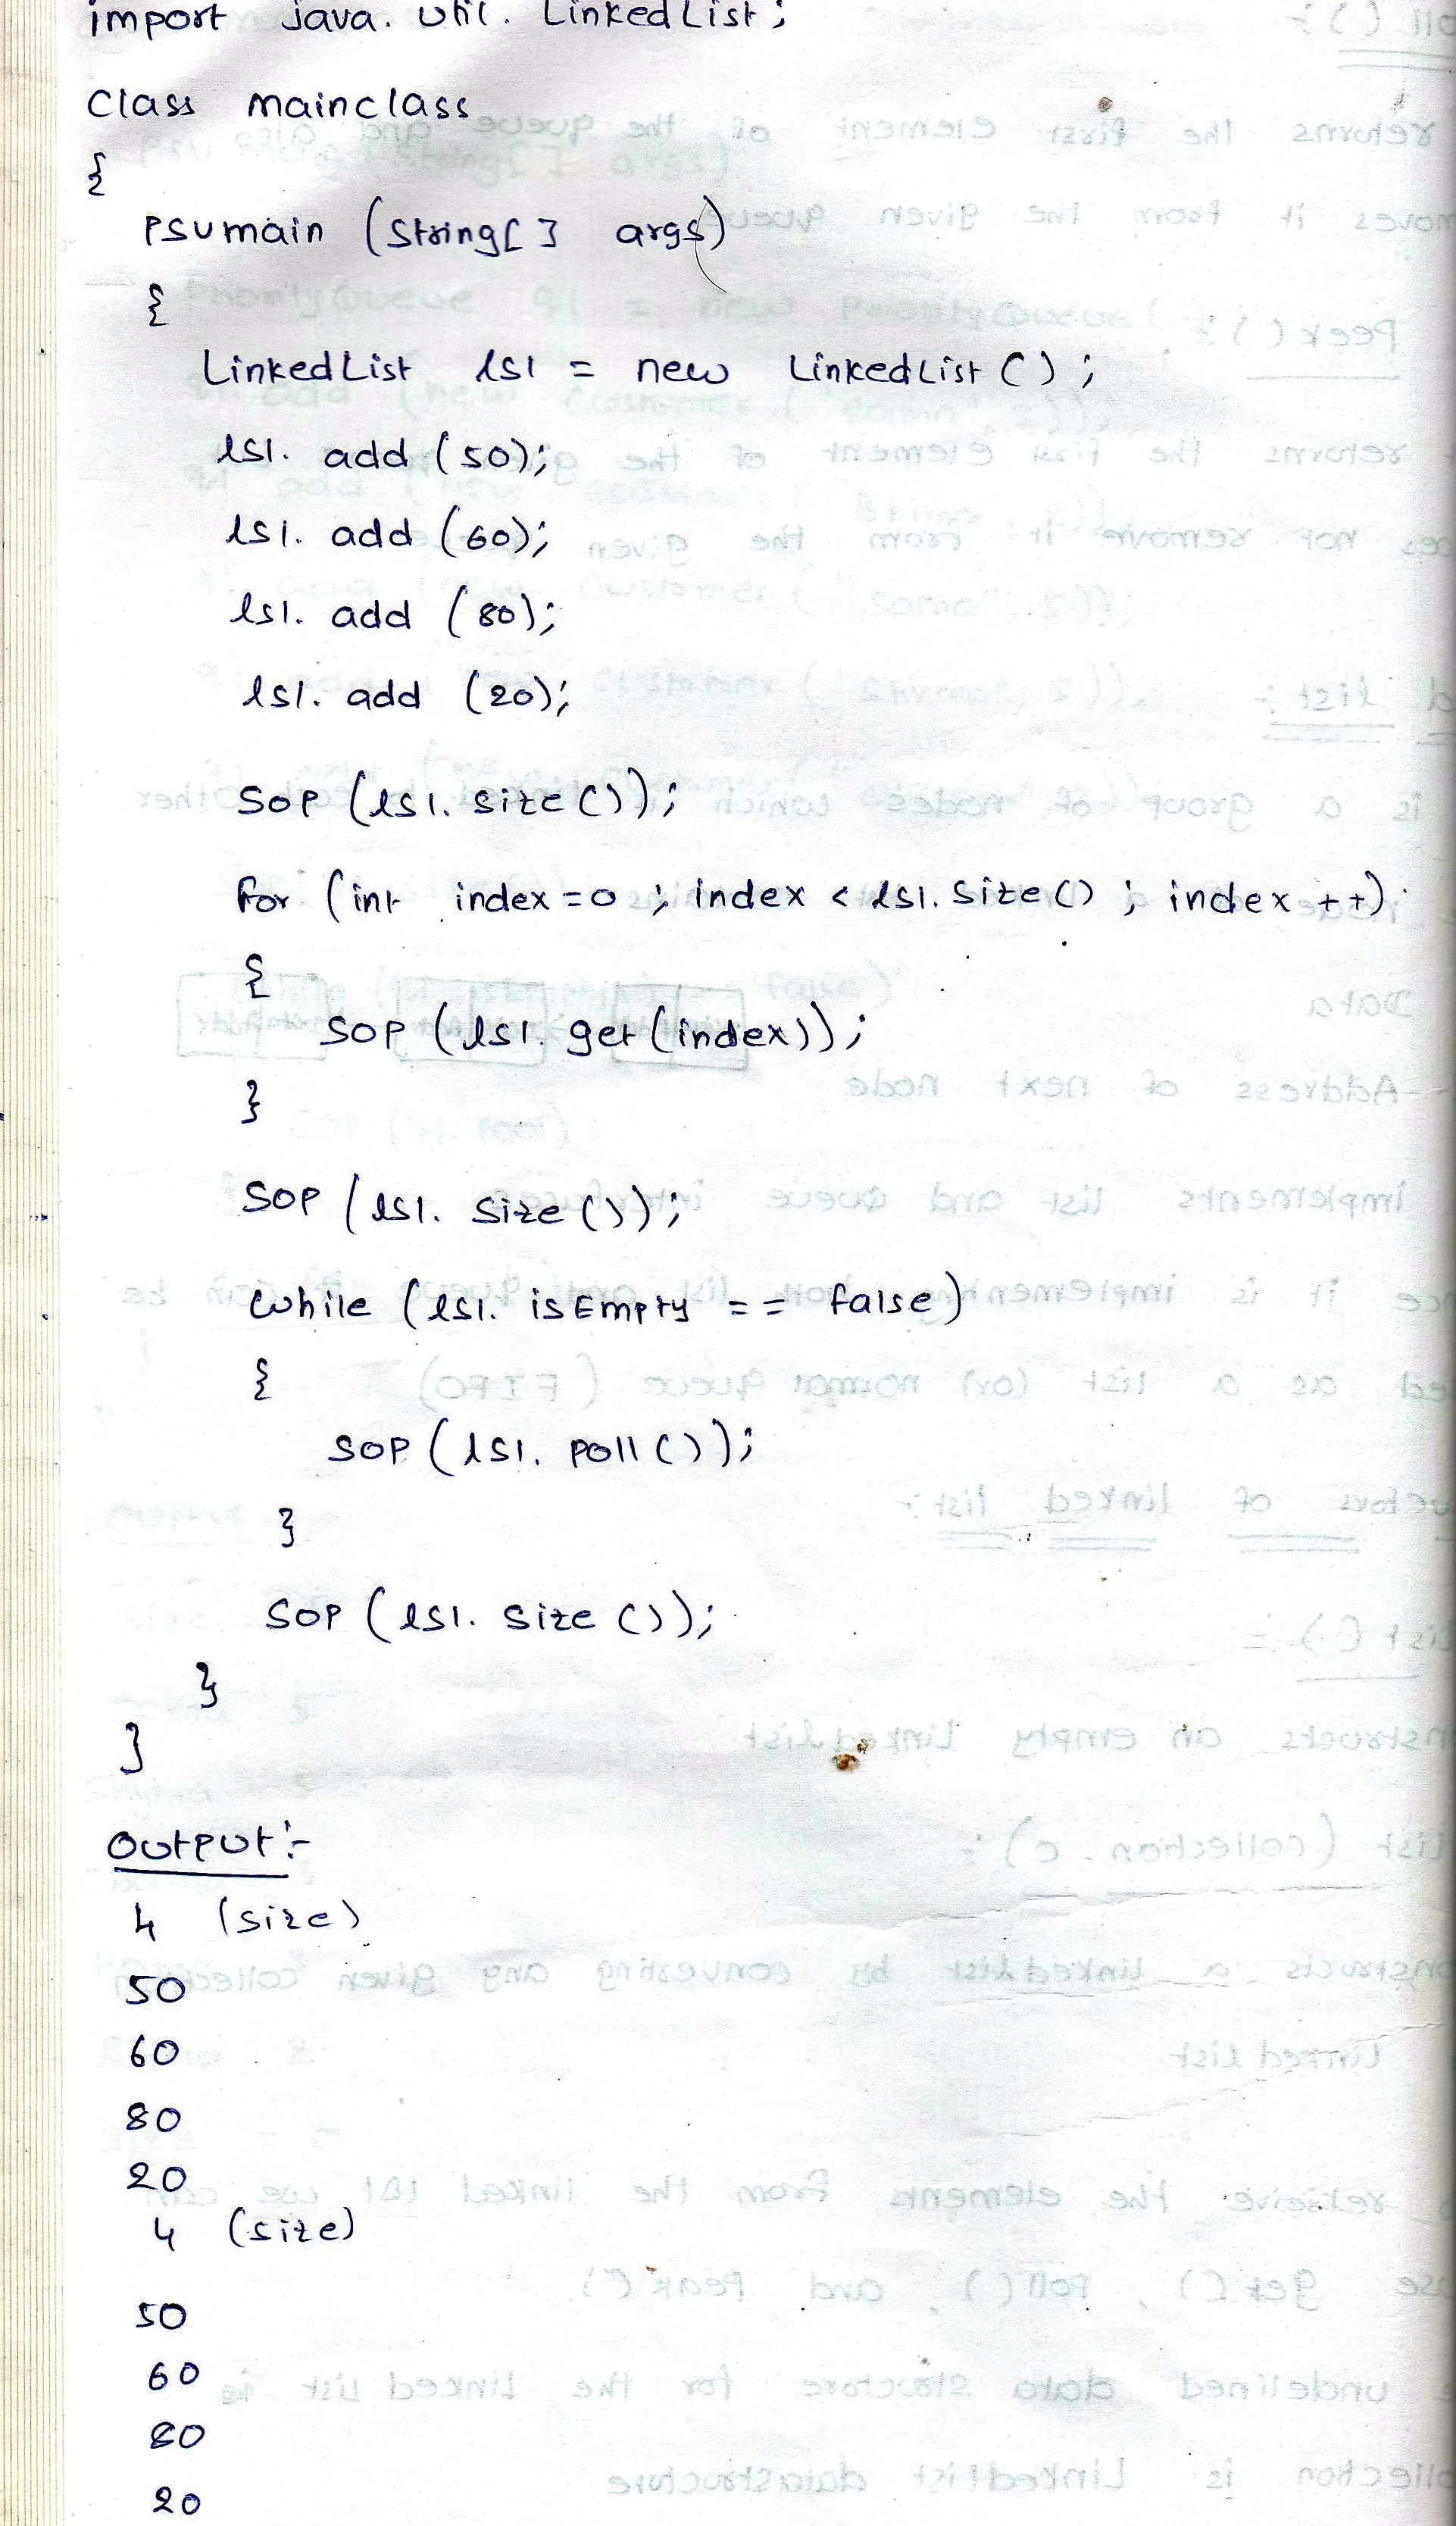 import java. util. LinkedList;
Class mainclass
{
PSVmain (String[] args)
{
LinkedList ls1 = new LinkedList();
ls1. add (50);
ls1. add (60);
ls1. add (80);
ls1. add (20);
SOP (ls1. size());
for (int index=0 ; index < ls1. size() ; index ++)
{
SOP (ls1. get(index));
}
SOP (ls1. size());
while (ls1. isEmpty == false)
{
SOP (ls1. poll());
}
SOP (ls1. size());
}
}
Output:-
4 (size)
50
60
80
20
4 (size)
50
60
80
20